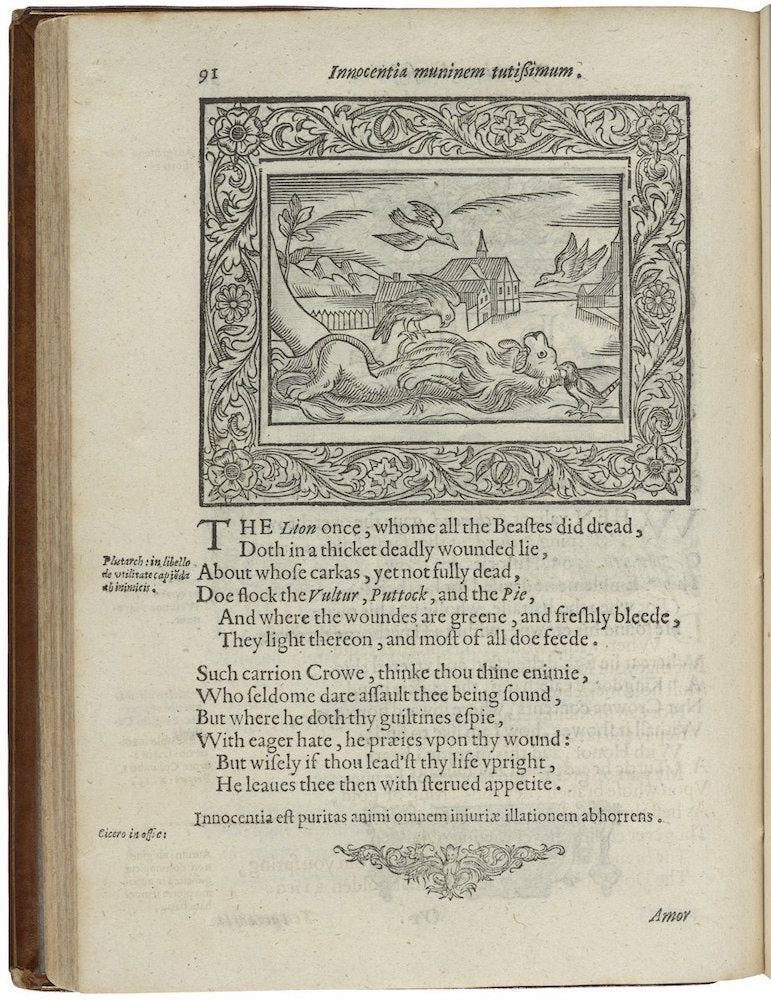 91 Innocentia muninem tutiſsimum.
THE Lion once, whome all the Beaſtes did dread,
Doth in a thicket deadly wounded lie,
Plutarch: in libello
de vtilitate capiẽda
ab inimicis.
About whoſe carkas, yet not fully dead,
Doe flock the Vultur, Puttock, and the Pie,
And where the woundes are greene, and freſhly bleede,
They light thereon, and moſt of all doe feede.
Such carrion Crowe, thinke thou thine enimie,
Who ſeldome dare aſſault thee being ſound,
But where he doth thy guiltines eſpie,
With eager hate, he præies vpon thy wound:
But wiſely if thou lead'ſt thy life vpright,
He leaues thee then with ſterued appetite.
Innocentia eſt puritas animi omnem iniuriæ illationem abhorrens.
Cicero in offic:
Amor